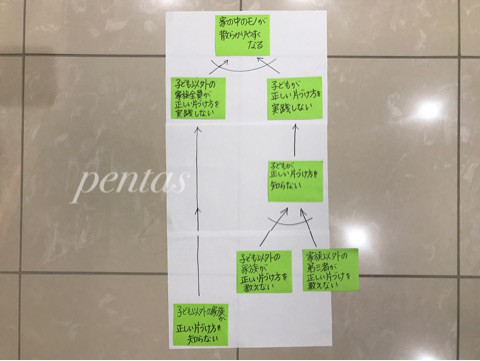 家の中のモノが
散らかりやすく
なる
子ども以外の
家族全員が
正しい片づけ方を
実践しない
子どもが
正しい片づけ方を
実践しない
子どもが
正しい片づけ方を
知らない
pentas
子ども以外の
家族が
正しい片づけ方を
教えない
家族以外の
第三者が
正しい片づけを
教えない
子ども以外の家族が
正しい片づけ方を
知らない